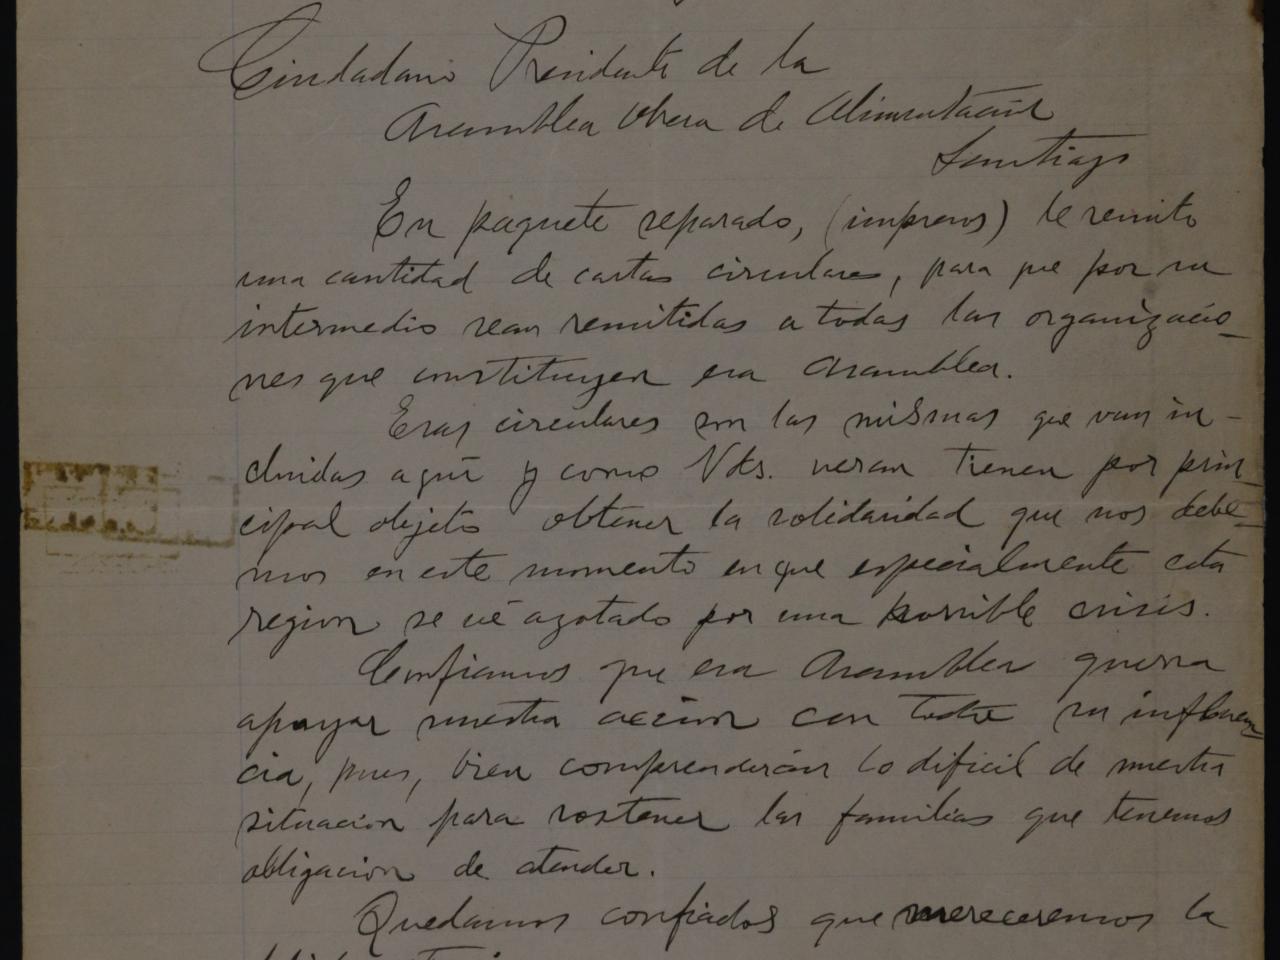 Ciudadano Presidente de la
Asamblea Obrera de Alimentación
Santiago
En paquete separado, (impresos) le remito
una cantidad de cartas circulares, para que por su
intermedio sean remitidas a todas las organizacio-
nes que constituyen esa Asamblea.
Esas circulares son las mismas que van in-
cluidas aquí y como Vds. veran tienen por prin-
cipal objeto obtener la solidaridad que nos debe-
mos en este momento en que especialmente esta
region se vé azotado por una horrible crisis.
Confiamos que esa Asamblea querra
apoyar nuestra accion con toda su influen-
cia, pues, bien comprenderán lo dificil de nuestra
situacion para sostener las familias que tenemos
obligacion de atender.
Quedamos confiados que mereceremos la